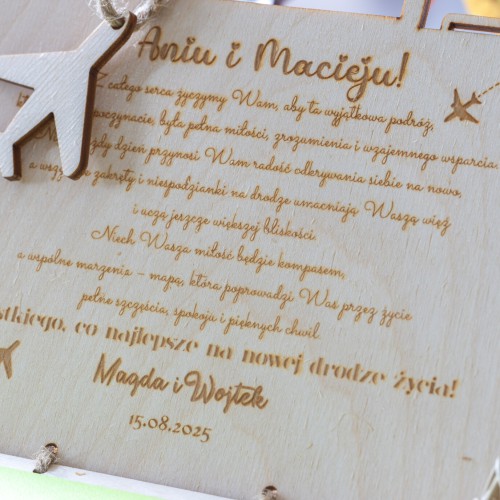 Aniu i Macieju!
Z całego serca życzymy Wam, aby ta wyjątkowa podróż,
poczynacie, była pełna miłości, zrozumienia i wzajemnego wsparcia.
dzień przynosi Wam radość odkrywania siebie na nowo,
a zakręty i niespodzianki na drodze umacniają Waszą więź
i uczą jeszcze większej bliskości.
Niech Wasza miłość będzie kompasem,
a wspólne marzenia – mapą, która poprowadzi Was przez życie
pełne szczęścia, spokoju i pięknych chwil.
stkiego, co najlepsze na nowej drodze życia!
Magda i Wojtek
15.08.2025